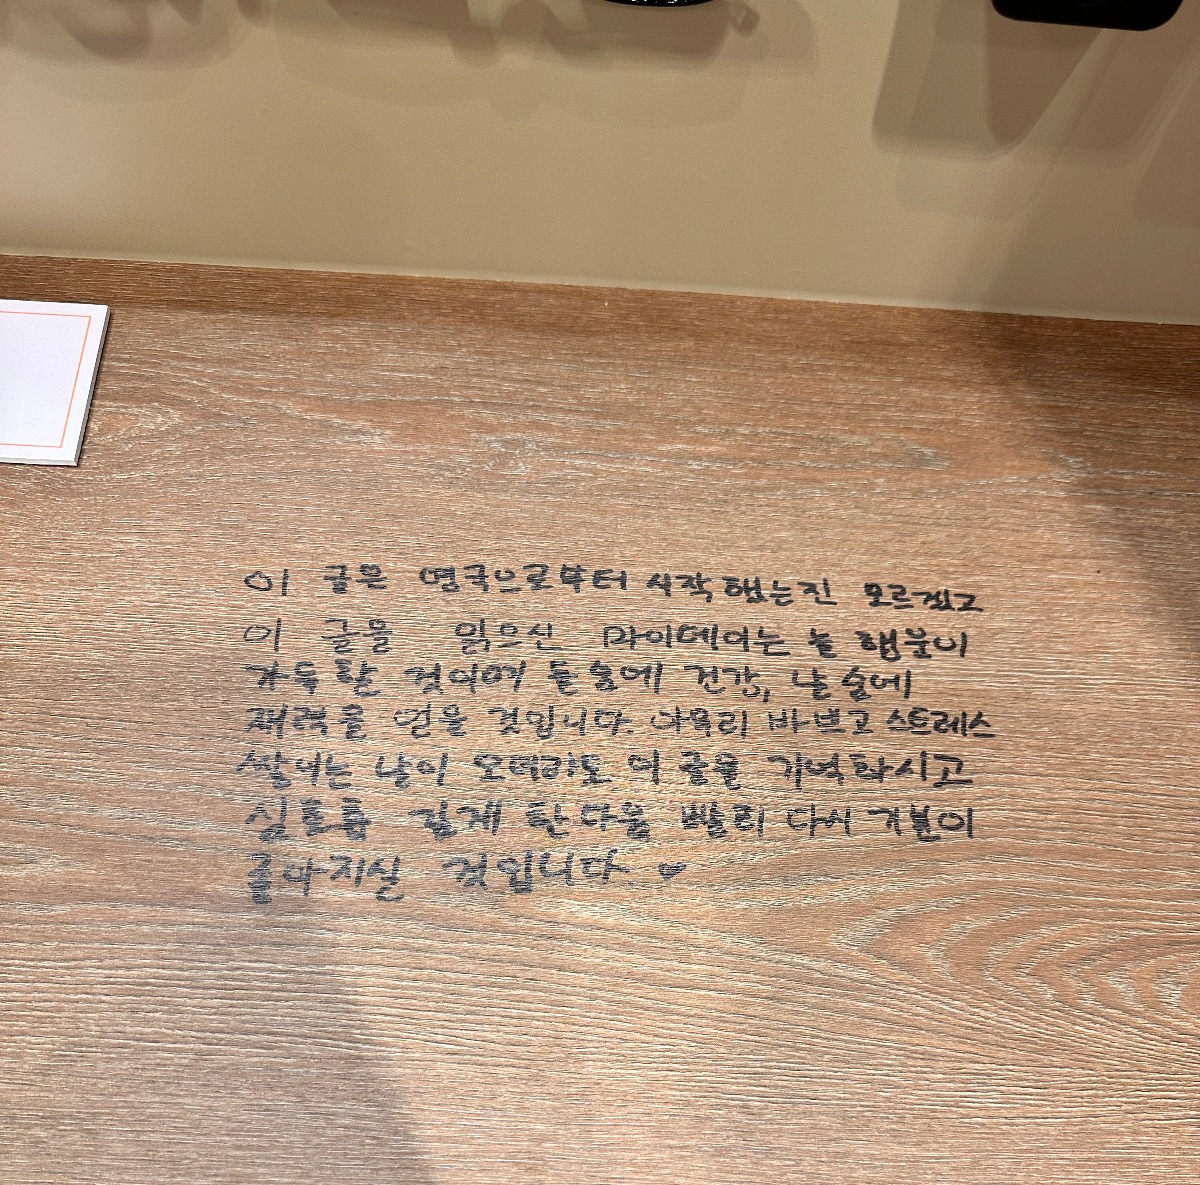 이 글은 영국으로부터 시작했는진 모르겠고
이 글을 읽으신 마이데이는 늘 행운이
가득할 것이며 들숨에 건강, 날숨에
재력을 얻을 것입니다. 아무리 바쁘고 스트레스
쌓이는 날이 오더라도 이 글을 기억하시고
심호흡 길게 한 다음 빨리 다시 기분이
좋아지실 것입니다. ♥